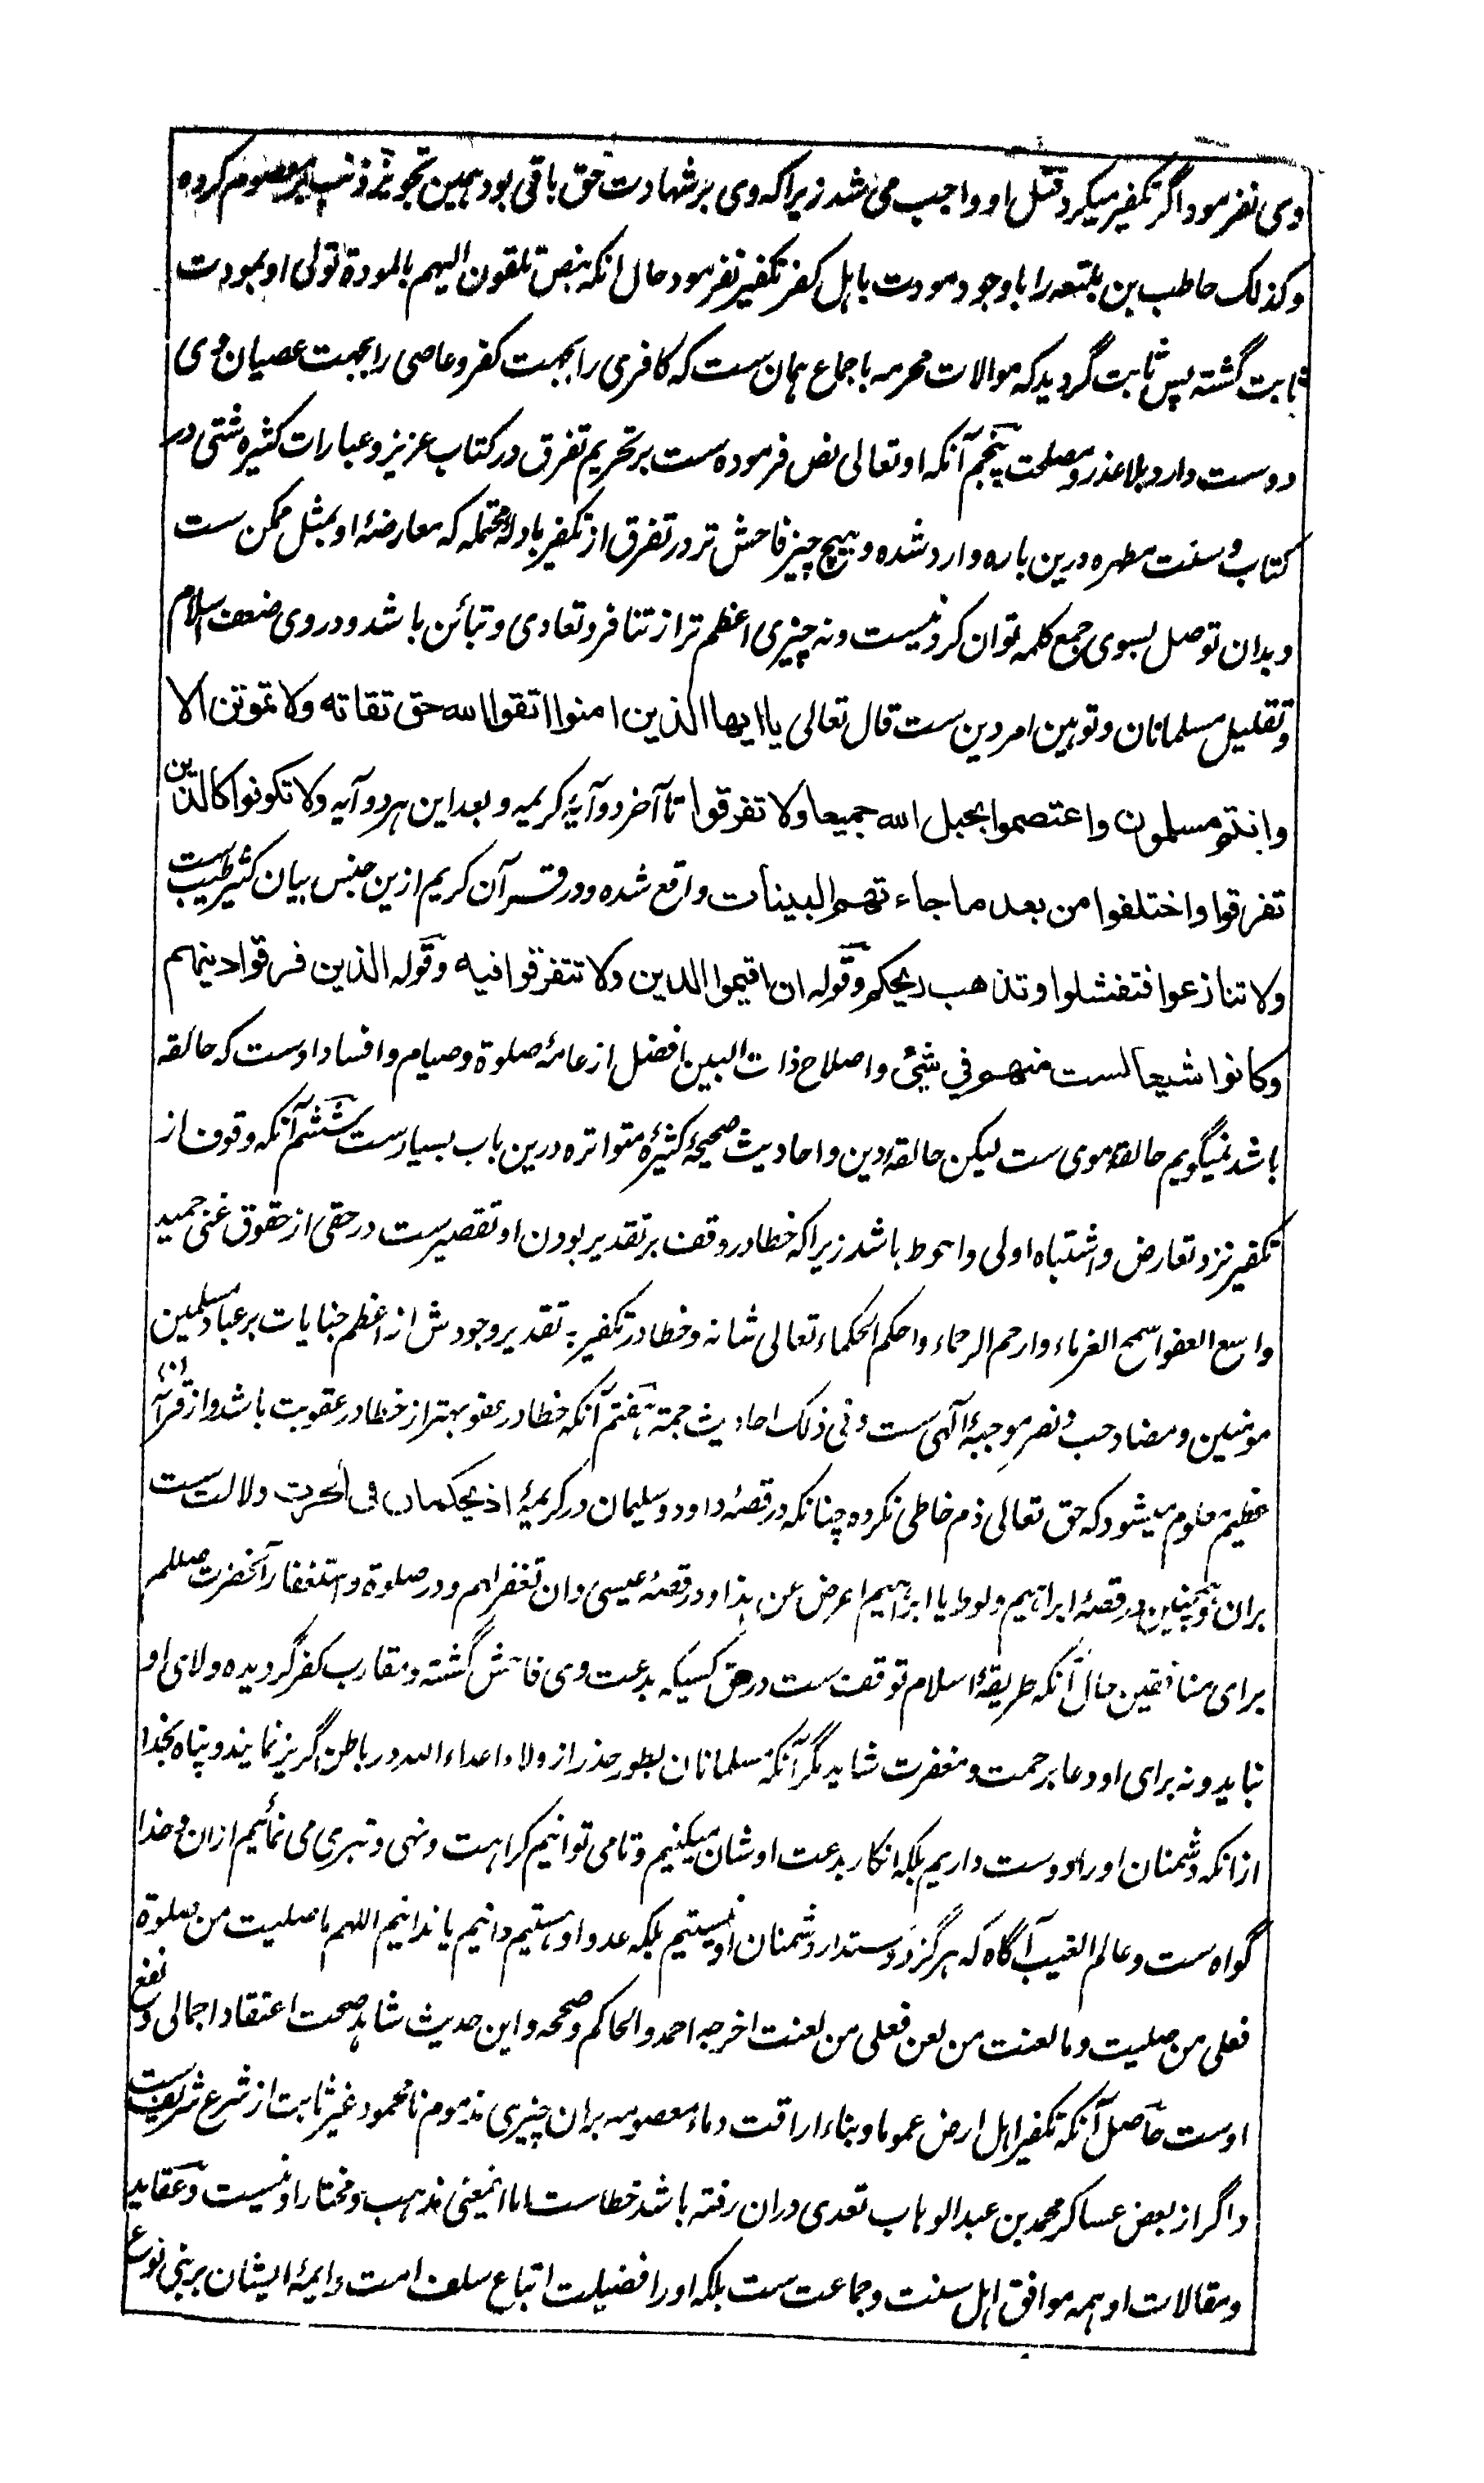 وی نفرمود اگر تکفیر میکرد قتل او واجب می شد زیرا که وی بر شهادت حق باقی بود همین تجویز ذنب بر معصوم کرده
وکذلک حاطب بن بلتعه را با وجود مودت باہل کفر تکفیر نفرمود حال انکه بنص تلقون الیهم بالمودة تولی او بمودت
ثابت گشته پس ثابت گردید که موالات محرمه باجماع ہمان ست که کافری را بجهت کفر و عاصی را بجهت عصیان وی
دوست دارد بلا عذر و مصلحت پنجم آنکه او تعالی نص فرموده ست بر تحریم تفرق در کتاب عزیز و عبارات کثیره شتی در
کتاب و سنت مطهره درین باره وارد شده و ہیچ چیز فاحش تر در تفرق از تکفیر بادلۀ محتمله که معارضۀ او بمثل ممکن ست
و بدان توصل بسوی جمع کلمه توان کرد نیست و نه چیزی اعظم تر از تنافر و تعادی و تبائن باشد و در وی ضعف اسلام
و تقلیل مسلمانان و توہین امر دین ست قال تعالی یا ایها الذین امنوا اتقوا الله حق تقاته ولا تموتن الا
وانتم مسلمون واعتصموا بحبل الله جمیعا ولا تفرقوا تا آخر دو آیۀ کریمه و بعد این ہر دو آیه ولا تکونوا کالذین
تفرقوا واختلفوا من بعد ما جاءتهم البینات واقع شده و در قرآن کریم ازین جنس بیان کثیر طیب ست
ولا تنازعوا فتفشلوا وتذهب ریحکم وقوله ان اقیموا الدین ولا تتفرقوا فیه وقوله الذین فرقوا دینهم
وکانوا شیعا لست منهم فی شیئ و اصلاح ذات البین افضل از عامۀ صلوة و صیام و افساد اوست که حالقه
باشد نمیگویم حالقۀ موی ست لیکن حالقۀ دین و احادیث صحیحۀ کثیرۀ متواتره درین باب بسیارست ششم آنکه وقوف از
تکفیر نزد تعارض و اشتباه اولی و احوط باشد زیرا که خطا در وقف بر تقدیر بودن او تقصیرست در حقی از حقوق غنی حمید
واسع العفو اسمح الغرماء وارحم الرحماء واحکم الحکماء تعالی شانه و خطا در تکفیر بہ تقدیر وجودش از اعظم جنایات بر عباد مسلمین
مومنین و مضاد حب و نصر موجبۀ آلهی ست وفی ذلک احادیث جمة ہفتم آنکه خطا در عفو بهتر از خطا در عقوبت باشد و از قرآن
عظیم معلوم میشود که حق تعالی ذم خاطی نکرده چنانکه در قصۀ داود و سلیمان در کریمۀ اذ یحکمان فی الحرث دلالت ست
بران و ہمچنین در قصۀ ابراہیم و لوط یا ابراہیم اعرض عن ہذا و در قصۀ عیسی وان تغفر لهم و در صلوة و استغفار آنحضرت صللم
برای منافقین حال آنکه طریقۀ اسلام توقف ست در حق کسیکه بدعت وی فاحش گشته و مقارب کفر گردیده ولای او
نباید و نه برای او دعا برحمت و مغفرت شاید مگر آنکه مسلمانان بطور حذر از ولاء اعداء الله در باطن گریز نمایند و پناه بخدا
ازانکه دشمنان او را دوست داریم بلکه انکار بدعت اوشان میکنیم و تا می توانیم کراہت و نهی و تبری می نمائیم ازان و خدا
گواه ست و عالم الغیب آگاه که ہرگز دوستدار دشمنان او نیستیم بلکه عدو او ہستیم دانیم یا ندانیم اللهم ما صلیت من صلوة
فعلی من صلیت وما لعنت من لعن فعلی من لعنت اخرجه احمد والحاکم وصححه و این حدیث شاہد صحت اعتقاد اجمالی و نفع
اوست حاصل آنکه تکفیر اہل ارض عموما و بناء اراقت دماء معصومه بران چیزی مذموم نامحمود غیر ثابت از شرع شریف ست
و اگر از بعض عساکر محمد بن عبد الوہاب تعدی دران رفته باشد خطاست اما اینمعنی مذہب و مختار او نیست و عقاید
و مقالات او ہمه موافق اہل سنت و جماعت ست بلکه او را فضیلت اتباع سلف امت و ایمۀ ایشان بر بنی نوع